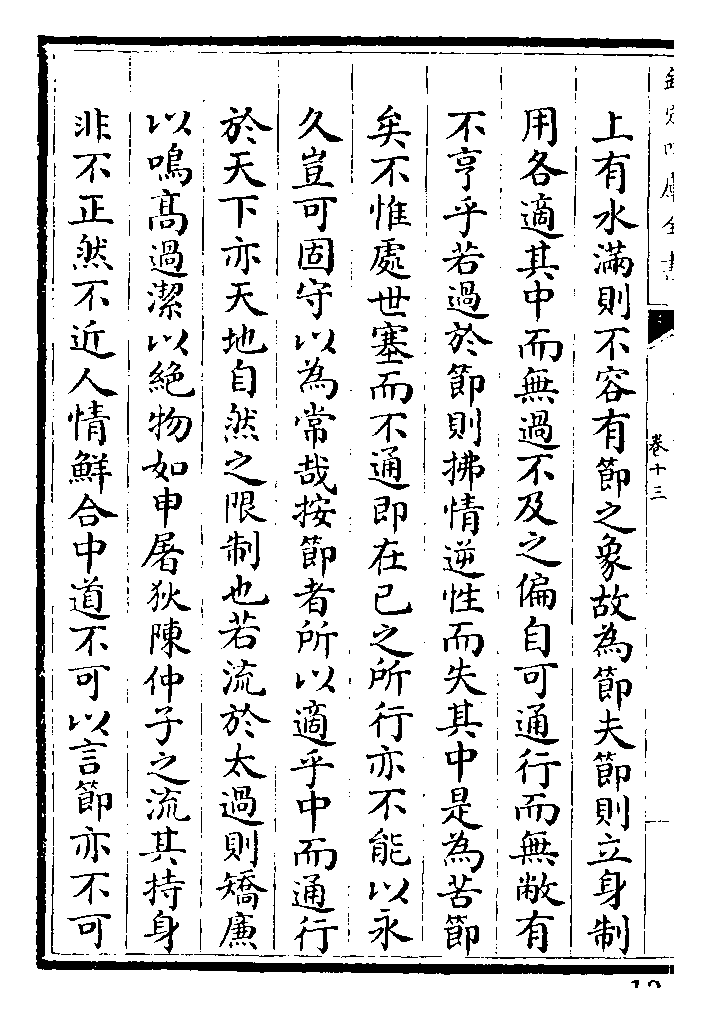 欽定四庫全書
卷十三
上有水滿則不容有節之象故為節夫節則立身制
用各適其中而無過不及之偏自可通行而無敝有
不亨乎若過於節則拂情逆性而失其中是為苦節
矣不惟處世塞而不通即在已之所行亦不能以永
久豈可固守以為常哉按節者所以適乎中而通行
於天下亦天地自然之限制也若流於太過則矯廉
以鳴髙過潔以絶物如申屠狄陳仲子之流其持身
非不正然不近人情鮮合中道不可以言節亦不可